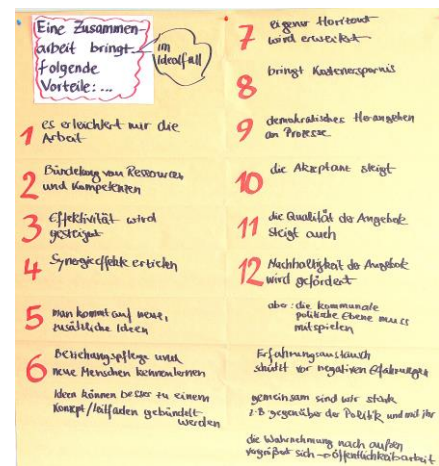 Eine Zusammen-
arbeit bringt
folgende
Vorteile: ...
im
Idealfall
1 es erleichtert mir die
Arbeit
2 Bündelung von Ressourcen
und Kompetenzen
3 Effektivität wird
gesteigert
4 Synergieeffekte erzielen
5 man kommt auf neue,
zusätzliche Ideen
6 Beziehungspflege und
neue Menschen kennenlernen
Ideen können besser zu einem
Konzept/Leitfaden gebündelt
werden
7 eigener Horizont
wird erweitert
8 bringt Kostenersparnis
9 demokratisches Herangehen
an Prozesse
10 die Akzeptanz steigt
11 die Qualität der Angebote
steigt auch
12 Nachhaltigkeit der Angebote
wird gefördert
aber: die kommunale
politische Ebene muss
mitspielen
Erfahrungsaustausch
schützt vor negativen Erfahrungen
gemeinsam sind wir stark
z.B gegenüber der Politik und mit ihr
die Wahrnehmung nach außen
vergrößert sich → Öffentlichkeitarbeit